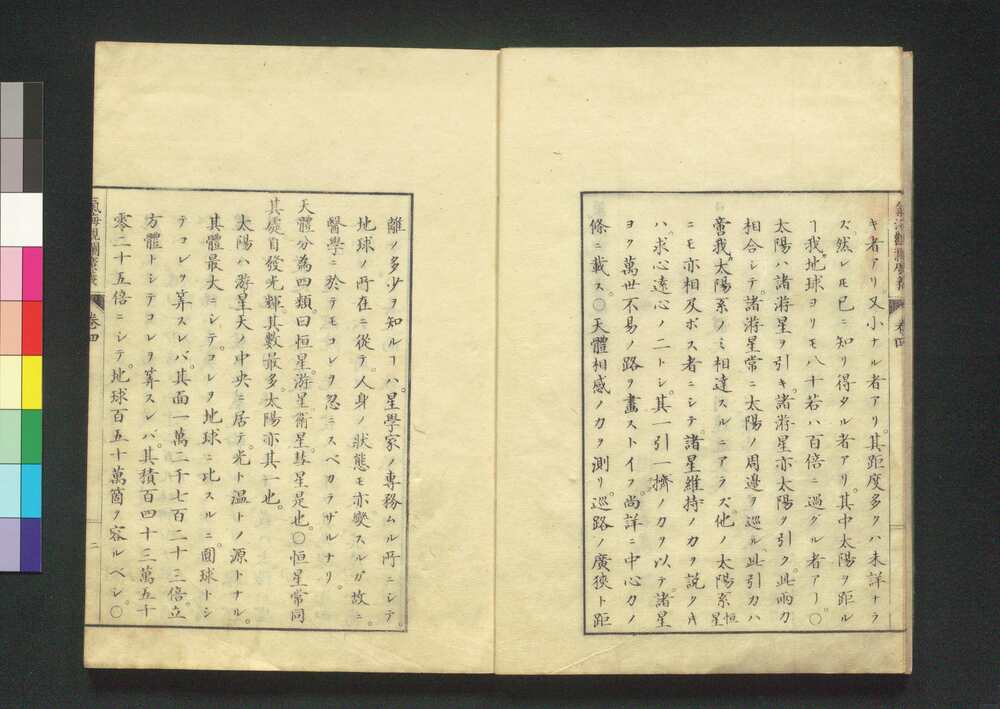 氣海觀瀾廣義
卷四
キ者アリ。又小ナル者アリ。其距度多クハ未詳ナラ
ズ。然レ𪜈已ニ知リ得タル者アリ。其中太陽ヲ距ル
ヿ我地球ヨリモ八十若ハ百倍ニ過グル者アリ。〇
太陽ハ諸游星ヲ引キ。諸游星亦太陽ヲ引ク。此兩力
相合シテ。諸游星常ニ太陽ノ周邊ヲ巡ル。此引力ハ
啻我太陽系ノミ相達スルニアラズ。他ノ太陽系恒星
ニモ亦相及ボス者ニシテ。諸星維持ノ力ヲ説クキ
ハ。求心遠心ノ二トシ。其一引一擠ノ力ヲ以テ。諸星
ヨク萬世不易ノ路ヲ畫ストイフ。尚詳ニ中心力ノ
條ニ載ス。〇天體相感ノ力ヲ測リ。巡路ノ廣狹ト距
離ノ多少ヲ知ルヿハ。星學家ノ專務ムル所ニシテ。
地球ノ所在ニ從テ。人身ノ狀態モ亦變スルガ故ニ。
醫學ニ於テモコレヲ忽ニスベカラザルナリ。
天體分為四類。曰恒星。游星。衛星。彗星是也。〇恒星常同
其處。自發光輝。其數最多。太陽亦其一也。
太陽ハ游星天ノ中央ニ居テ。光ト温トノ源トナル。
其體最大ニシテ。コレヲ地球ニ比スルニ。面球トシ
テコレヲ算スレバ。其面一萬二千七百二十三倍。立
方體トシテコレヲ算スレバ。其積百四十三萬五千
零二十五倍ニシテ。地球百五十萬箇ヲ容ルベシ。〇
氣海觀瀾廣義
卷四
二